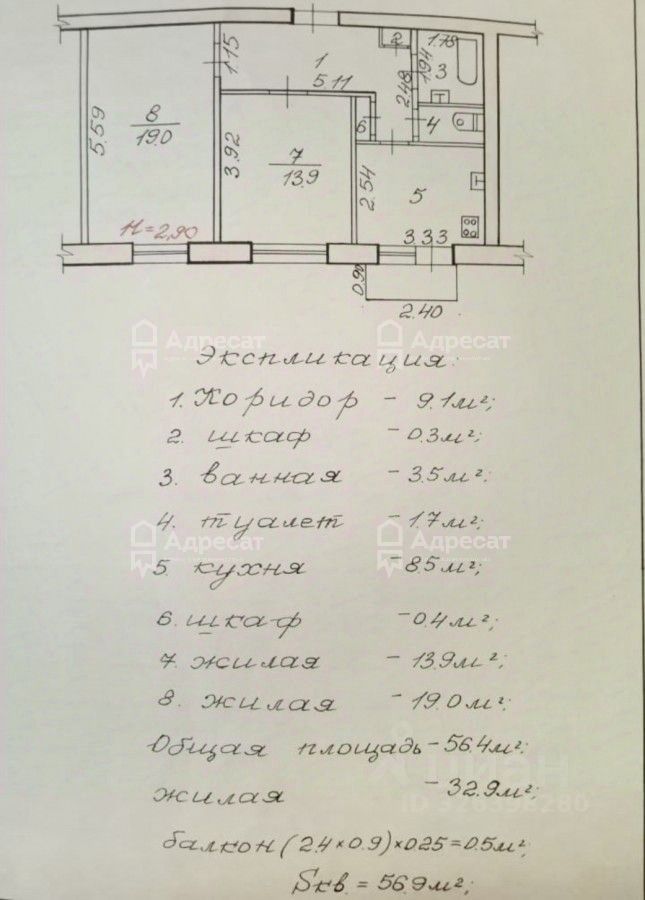 1.15
1
5.11
2
2.48
1.78
1.94
3
4
6
5.59
8
19.0
3.92
7
13.9
2.54
5
3.33
H=2,90
0.90
2.40
Адресат
Адресат
Экспликация:
1. Коридор - 9.1м²;
2. шкаф - 0.3м²;
3. ванная - 3.5м²;
4. туалет - 1.7м²;
Адресат
Адресат
5. кухня - 8.5м²;
6. шкаф - 0.4м²;
7. жилая - 13.9м²;
8. жилая - 19.0м²;
Общая площадь - 56.4м²;
жилая - 32.9м²;
циан
балкон (2.4×0.9)×0.25=0.5м²;
Sкв. = 56.9м²;